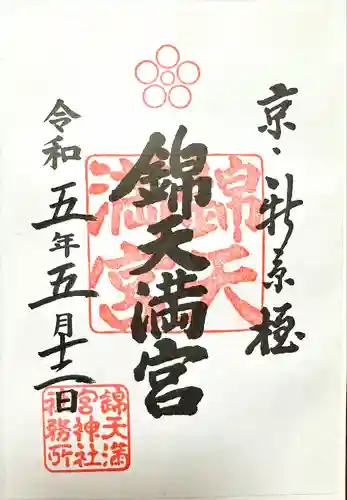 京・新京極
錦天満宮
令和五年五月十二日
錦天
満宮
錦天満
宮神社
社務所